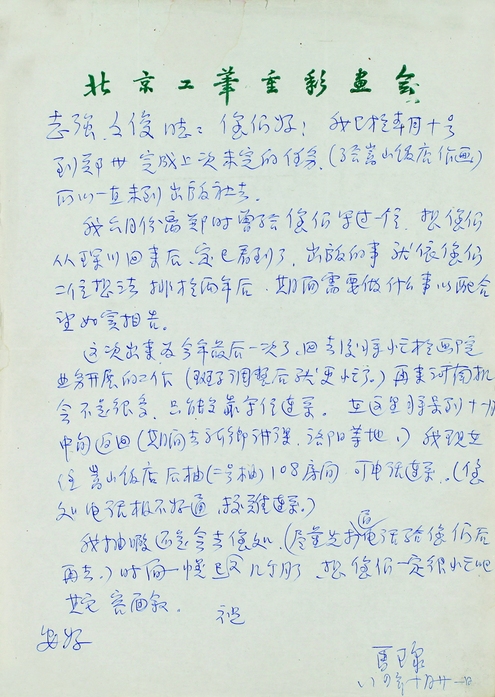 北京工筆重彩畫會
志强、文俊同志：您们好！我已於本月十号
到郑州完成上次未完的任务（给嵩山饭店作画）
所以一直未到出版社去。
我六月份离郑时曾给您们写过一信，想您们
从深圳回来后，定已看到了，出版的事就依您们
二位想法排於两年后，期间需要做什么事以配合
望如实相告。
这次出来为今年最后一次了，回去后将忙於画院
业务开展的工作（班子调整后就更忙了。）再来河南机
会不是很多，只能靠书信连系。在这里将呆到十一月
中旬返回（期间去新乡讲课，洛阳等地。）我现在
住嵩山饭店后楼（二号楼）108房间，可电话连系。（您
处电话极不好通，较难连系。）
我抽暇还是会去您处，（尽量先打电话给您们后
再去。）时间一愰已又几个月了，想您们一定很忙吧
其它容面叙。 祝
安好
八四年十月廿一日